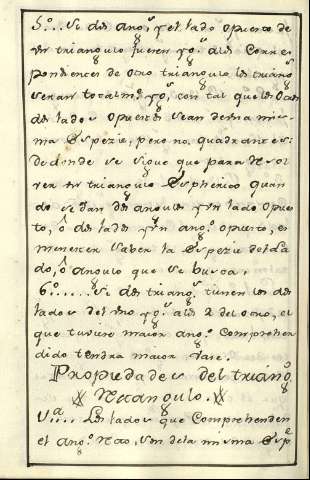 5º... Si dos angˢ, y el lado opuesto de
un triangulo fueren ygˢ a los corres
pondientes de otro triangulo los triangˢ
seran totalmᵗᵉ ygˢ, con tal que los otros
dos lados opuestos sean de una mis-
ma Espezie, pero no quadrantes:
de donde se sigue que para resol
ver un triangulo Espherico quan
do se dan dos angulos y un lado opues
to, ô dos lados y un angº opuesto, es
menester saber la Espezie del la
do, ô angulo que se busca.
6º...... Si dos triangˢ tienen los dos
lados del uno ygˢ a los 2 del otro, el
que tuviere maior angº comprehen
dido tendra maior vase.
Propiedades del triangº
rectangulo.
Vª... Los lados que comprehenden
el angº recto, son de la misma Espᵉ